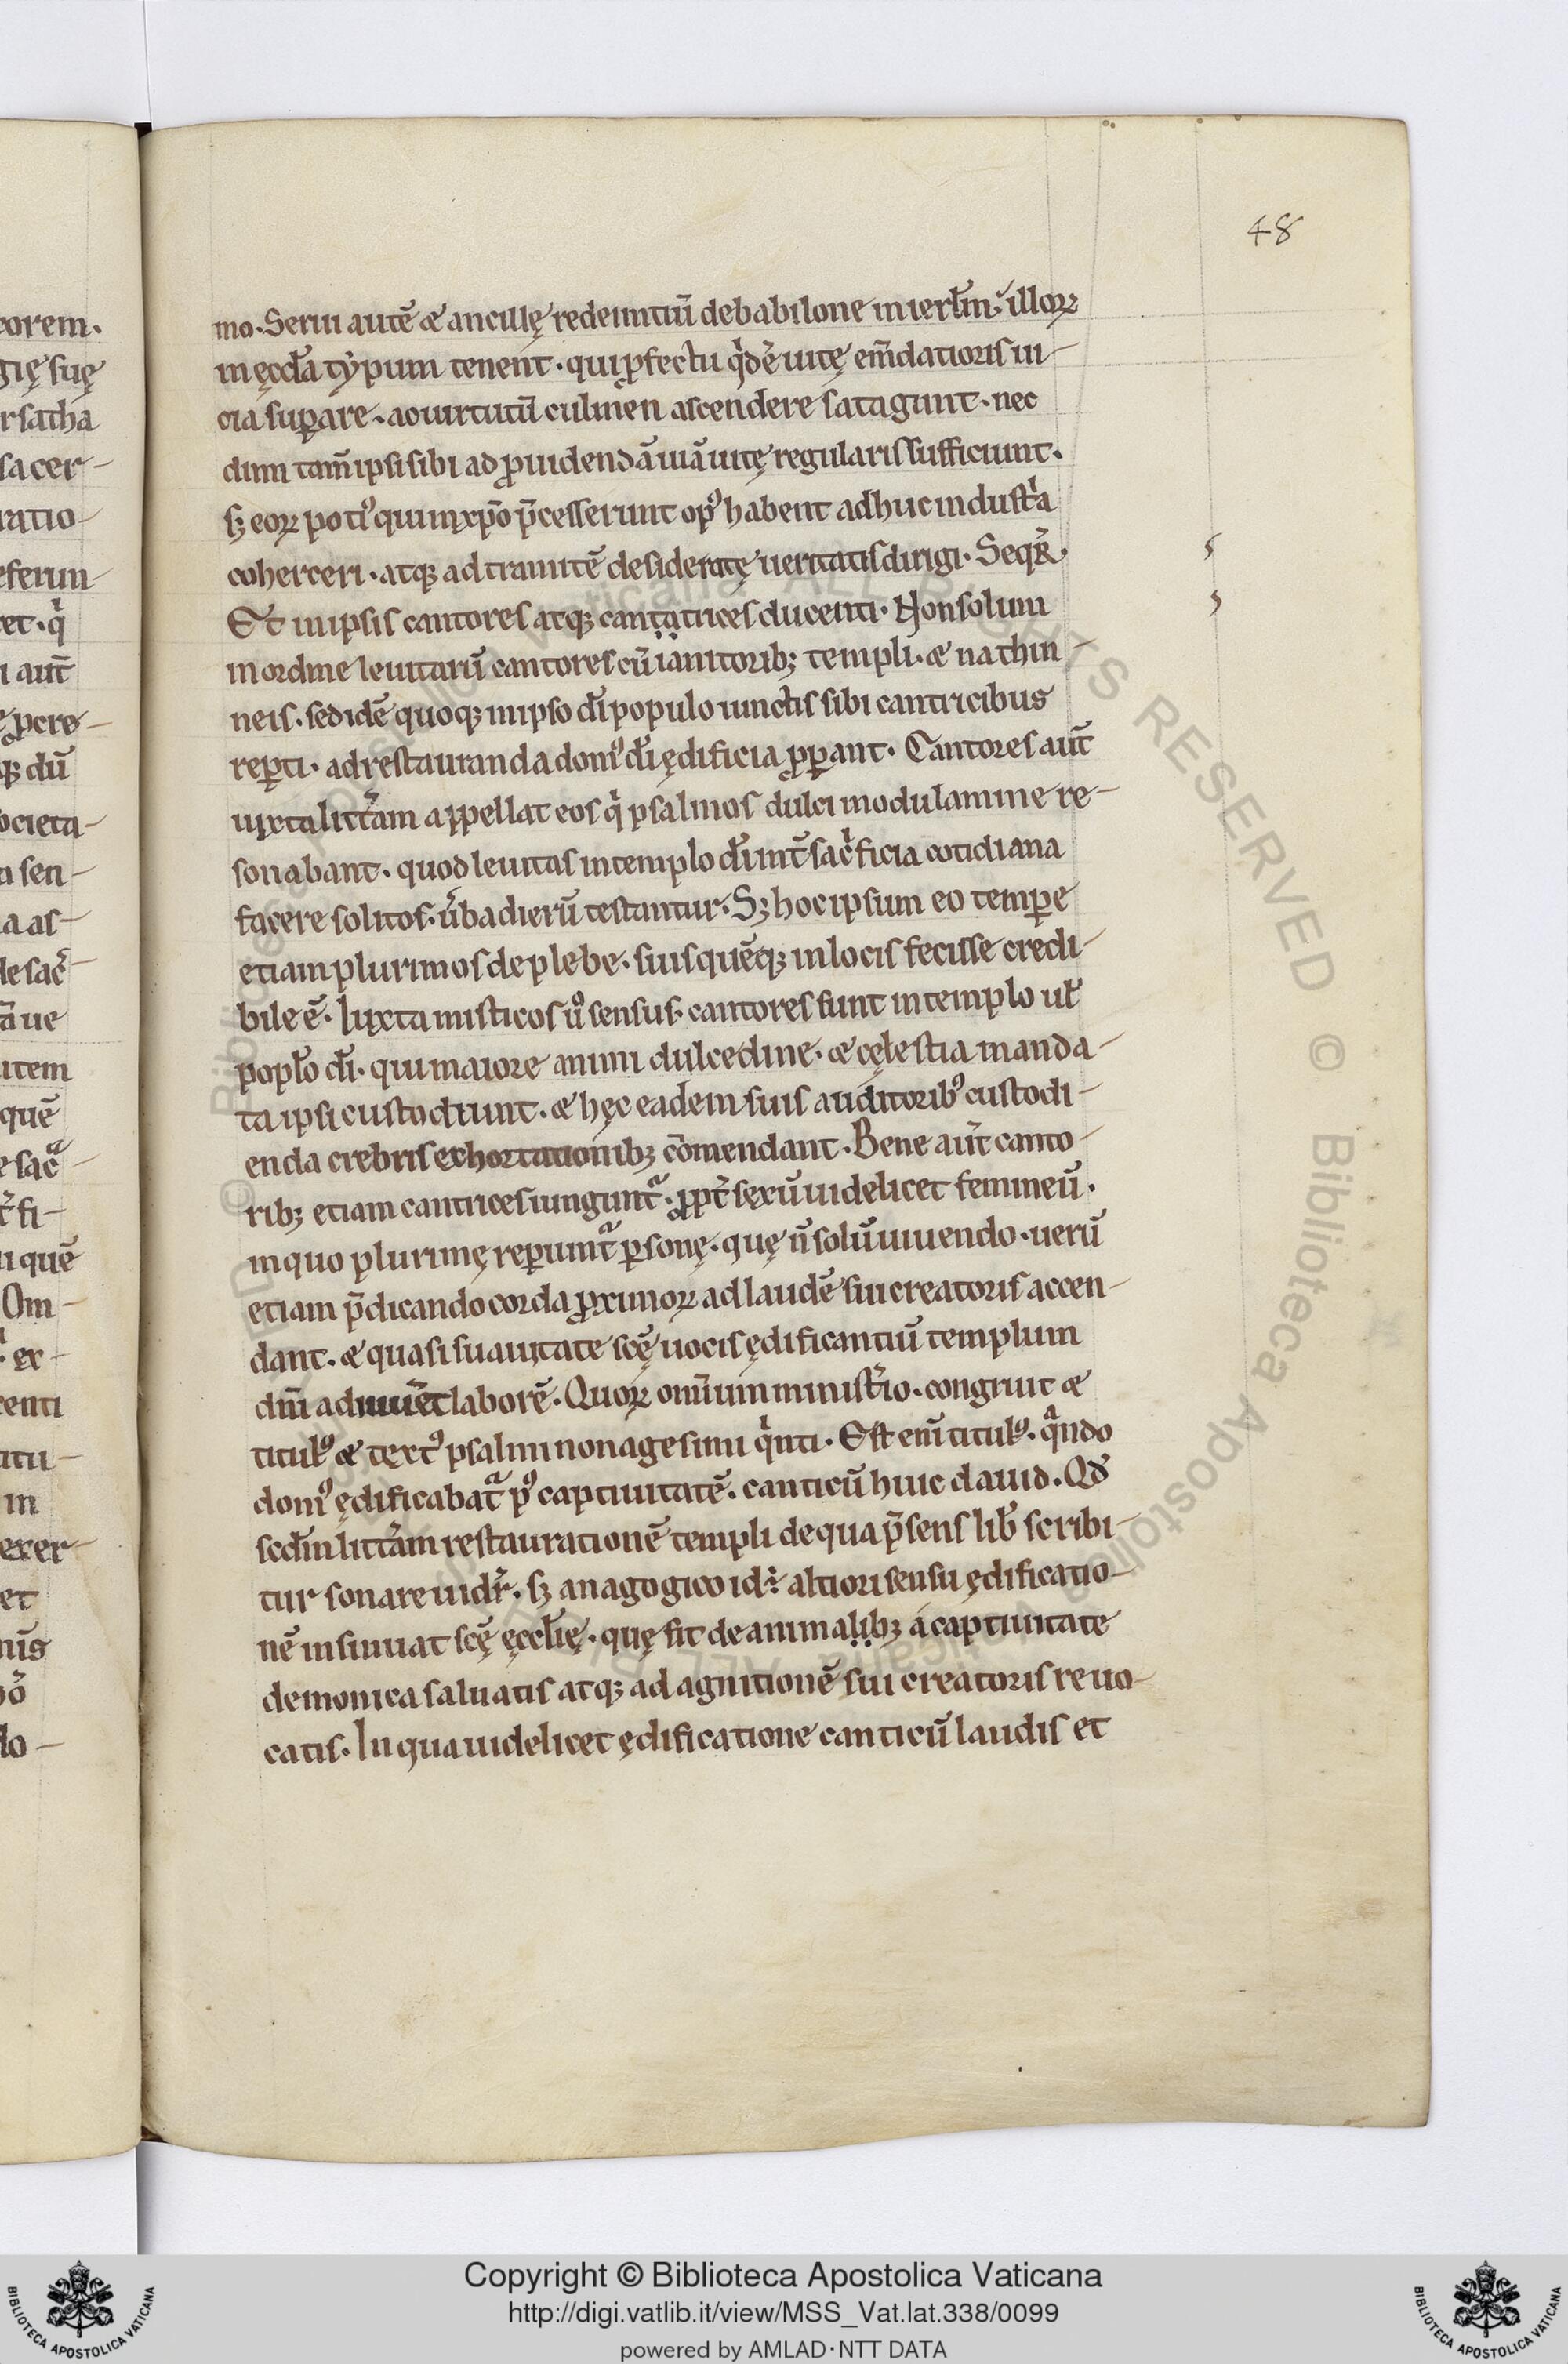 48
mo. Serui autē & ancillę redeuntiū de babilone in ierl̄m. illoꝝ
in ęccl̄a typum tenent. qui ꝓfectu q̇dē uitę em̄datioris ui-
cia suꝑare. ac uirtutū culmen ascendere satagunt. nec
dum tam̄ ipsi sibi ad ꝓuidendā uiā uitę regularis sufficiunt.
sꝫ eoꝝ poti᷒ qui in xp̄o p̄cesserunt op᷒ habent adhuc industͥa
coherceri. atqꝫ ad tramitē desideratę ueritatis dirigi. Seqͥꝶ.
Et in ipsis cantores atqꝫ cantatrices ducenti. Non solum
in ordine leuitarū cantores cū ianitoribꝫ templi. & nathin-
neis. sed idē quoqꝫ in ipso dī populo iunctis sibi cantricibus
reꝑti. ad restauranda dom᷒ dī ędificia ꝓꝑant. Cantores aut̄
iuxta litt̓am appellat eos qͥ psalmos dulci modulamine re-
sonabant. quod leuitas in templo dī int̄ sacͥficia cotidiana
facere solitos. u̓ba dierū testantur. Sꝫ hoc ipsum eo temꝑe
etiam plurimos de plebe. suis quēqꝫ in locis fecisse credi-
bile ē. Iuxta misticos u᷒ sensus. cantores sunt in templo ul̄
popl̄o dī. qui maiore animi dulcedine. & cęlestia manda-
ta ipsi custodiunt. & hęc eadem suis auditorib᷒ custodi-
enda crebris exhortationibꝫ cōmendant. Bene aut̄ canto-
ribꝫ etiam cantrices iungunt̃. ꝓpt̓ sexū uidelicet femineū.
in quo plurimę reꝑiunt̃ ꝑsonę. quę n̄ solū uiuendo. uerū
etiam p̄dicando corda ꝓximoꝝ ad laudē sui creatoris accen-
dant. & quasi suauitate scę̄ uocis ędificantiū templum
dn̄i adiuuēt laborē. Quoꝝ omnium ministͥo. congruit &
titul᷒ & text᷒ psalmi nonagesimi qͥnti. Est eni̅ titul᷒. qᷓndo
dom᷒ ędificabat̃ p᷒ captiuitatē. canticū huic dauid. Qd̄
scd̄m litt̓am restaurationē templi de qua p̄sens lib̄ scribi-
tur sonare uidr̄. sꝫ anagogico id.ē. altiori sensu ędificatio-
nē insinuat scę̄ ęccl̄ię. quę fit de animalibꝫ a captiuitate
demonica saluatis atqꝫ ad agnitionē sui creatoris reuo-
catis. In qua uidelicet ędificatione canticū laudis et
Copyright © Biblioteca Apostolica Vaticana
http://digi.vatlib.it/view/MSS_Vat.lat.338/0099
powered by AMLAD·NTT DATA